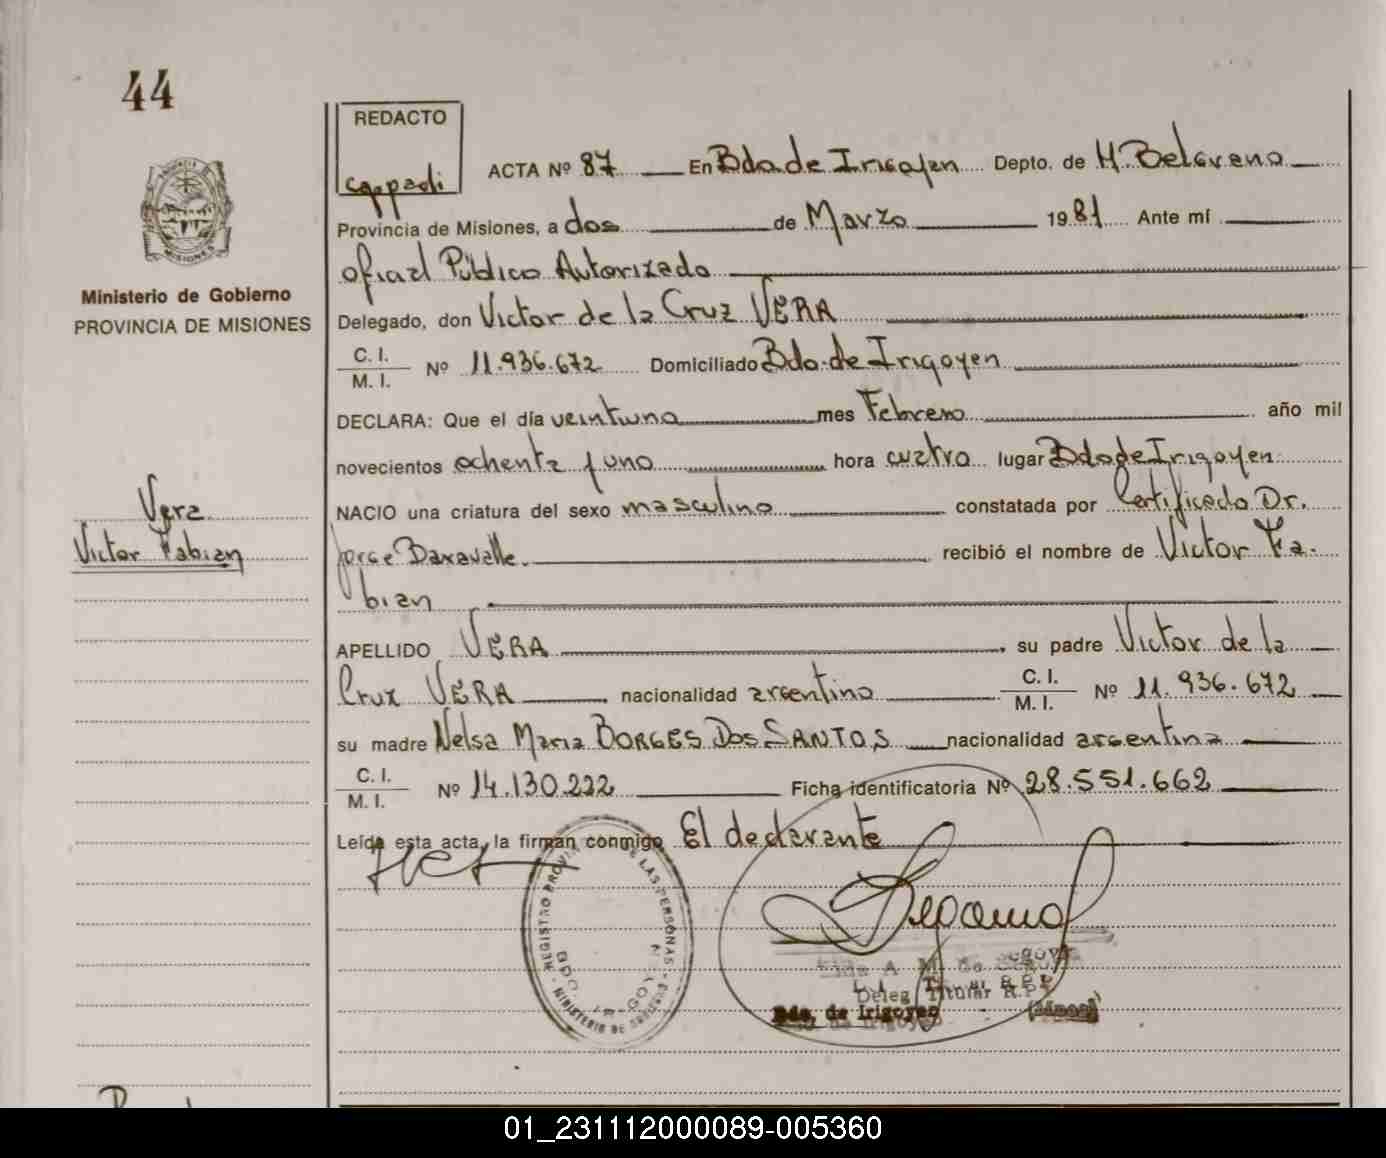 44
REDACTO
ACTA Nº 87 En Bdo de Irigoyen Depto. de M. Belgrano
Provincia de Misiones, a dos de Marzo 1981 Ante mí
oficial Público Autorizado
Ministerio de Gobierno
PROVINCIA DE MISIONES
Delegado, don Victor de la Cruz VERA
C. I.
M. I. Nº 11.936.672 Domiciliado Bdo. de Irigoyen
DECLARA: Que el día veintuno mes Febrero año mil
novecientos ochenta y uno hora cuatro lugar Bdo de Irigoyen
Vera
Victor Fabian
NACIO una criatura del sexo masculino constatada por Certificado Dr.
Jorge recibió el nombre de Victor Fa-
bian
APELLIDO VERA, su padre Victor de la
Cruz VERA, nacionalidad argentina C. I.
M. I. Nº 11.936.672
su madre Nelsa Maria BORGES Dos SANTOS nacionalidad argentina
C. I.
M. I. Nº 14.130.222 Ficha identificatoria Nº 28.551.662
Leída esta acta, la firman conmigo El declarante
REGISTRO DE LAS PERSONAS
BDO. IRIGOYEN
MINISTERIO DE
Deleg. Titular R.P.P
Bdo. de Irigoyen
01_231112000089-005360